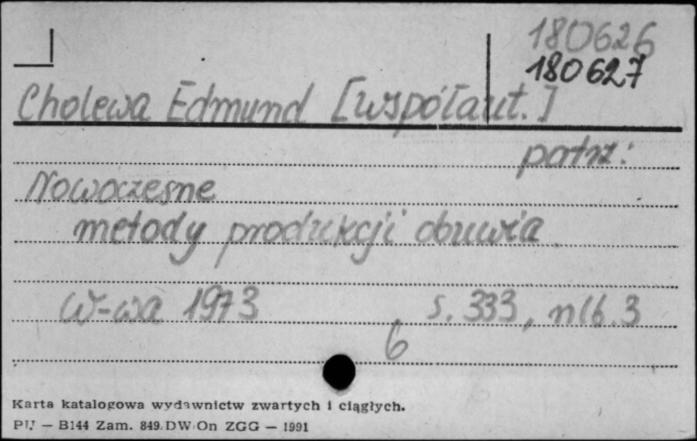 180626
180627
Cholewa Edmund [współaut.]
patrz:
Nowoczesne
metody produkcji obuwia
W-wa 1973 s. 333, nlb. 3
6
Karta katalogowa wydawnictw zwartych i ciągłych.
PU — B144 Zam. 849. DW On ZGG — 1991